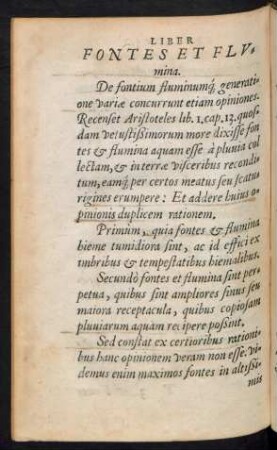 LIBER
FONTES ET FLV-
mina.
De fontium fluminumq́; generati-
one variæ concurrunt etiam opiniones.
Recenset Aristoteles lib. 1. cap. 13. quos-
dam vetustißimorum more dixisse fon
tes & flumina aquam esse à pluuia col
lectam, & in terræ visceribus recondi-
tum, eamq́; per certos meatus seu scatu-
rigines erumpere: Et addere huius o-
pinionis duplicem rationem.
Primum, quia fontes & flumina
hieme tumidiora sint, ac id effici ex
imbribus & tempestatibus hiemalibus.
Secundò fontes et flumina sint per-
petua, quibus sint ampliores sinus seu
maiora receptacula, quibus copiosam
pluuiarum aquam recipere poßint.
Sed constat ex certioribus rationi-
bus hanc opinionem veram non esse. Vi-
demus enim maximos fontes in altißi-
mis